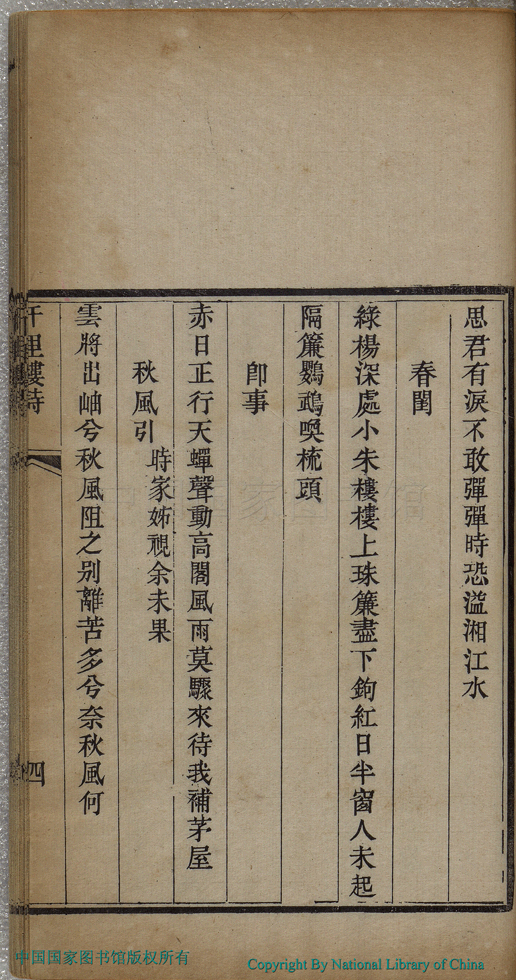 思君有淚不敢彈彈時恐溢湘江水
春閨
綠楊深處小朱樓樓上珠簾盡下鉤紅日半窗人未起
隔簾鸚鵡喚梳頭
卽事
赤日正行天蟬聲動高閣風雨莫驟來待我補茅屋
秋風引 時家姊視余未果
雲將出岫兮秋風阻之別離苦多兮奈秋風何
千里樓詩
四
中国国家图书馆版权所有
Copyright By National Library of China